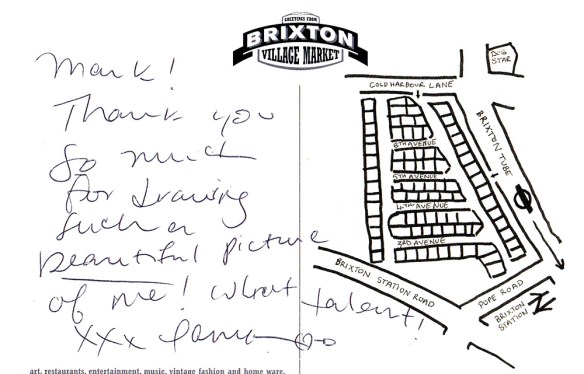 GREETINGS FROM
BRIXTON
VILLAGE MARKET
Mark!
Thank you
so much
for drawing
such a
beautiful picture
of me! What talent!
xxx
DOG
STAR
COLDHARBOUR LANE
BRIXTON TUBE
6TH AVENUE
5TH AVENUE
4TH AVENUE
3RD AVENUE
BRIXTON STATION ROAD
POPE ROAD
BRIXTON
STATION
art, restaurants, entertainment, music, vintage fashion and home ware.